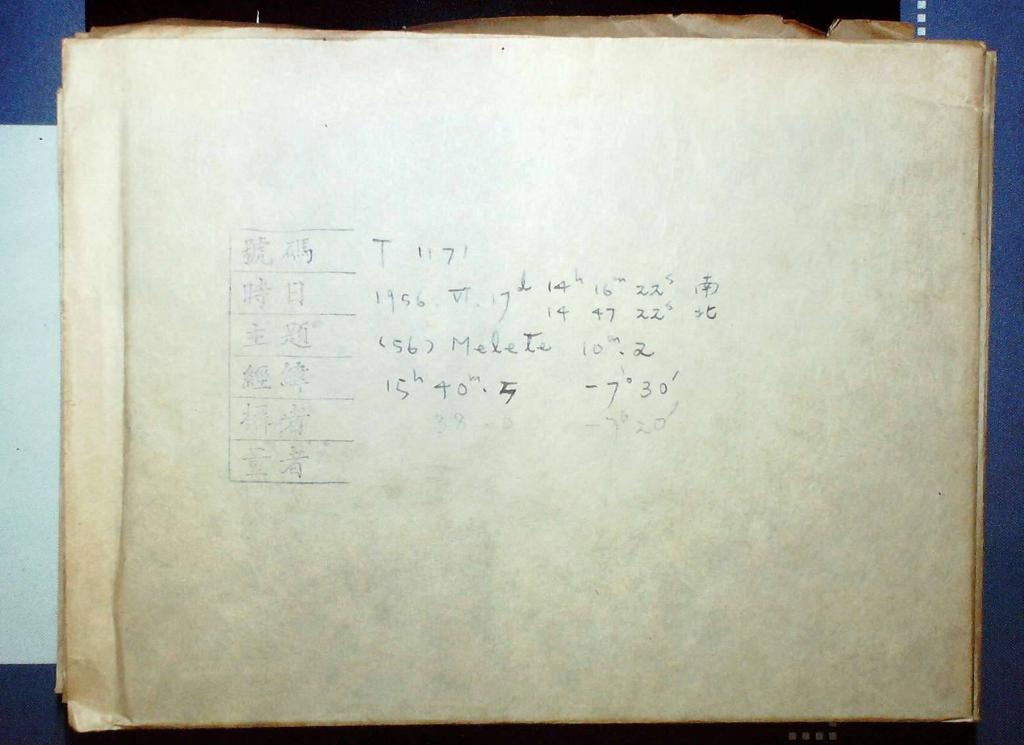 號碼 T 1171
時日 1956. VI. 17ᵈ 14ʰ 16ᵐ 22ˢ 南
14 47 22ˢ 北
主題 (56) Melete 10ᵐ.2
經緯 15ʰ 40ᵐ.5 -7°30′
攝者 38.0 -7°20′
量者